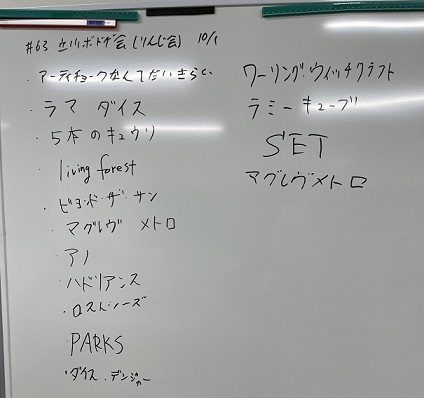 #63 立川ボドゲ会(りんじ会) 10/1
・アーティチョークなんてだいきらい
・ラマ ダイス
・5本のキュウリ
・living forest
・ビヨンド・ザ・サン
・マグレヴ メトロ
・アノ
・ハドリアンズ
・ロストシーズ
・PARKS
・ダイス・デンジャー
ワーリング・ウィッチクラフト
ラミーキューブ
SET
マグレヴメトロ